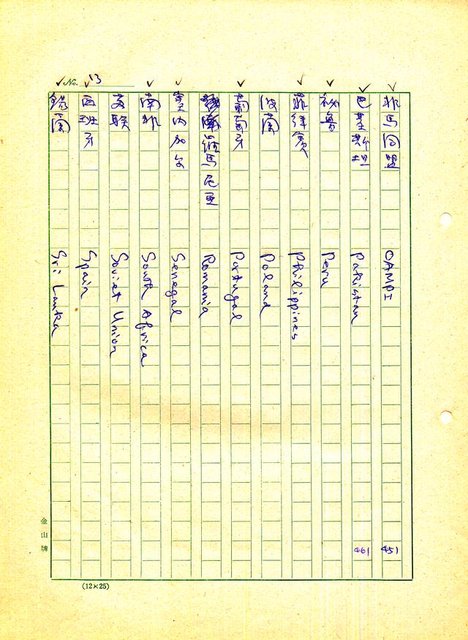 No. 13
非馬同盟 OAMPI 451
巴基斯坦 Pakistan 461
秘魯 Peru
菲律賓 Philippines
波蘭 Poland
葡萄牙 Portugal
羅馬尼亞 Romania
塞內加尔 Senegal
南非 South Africa
苏联 Soviet Union
西班牙 Spain
錫蘭 Sri Lanka
金山牌
(12×25)